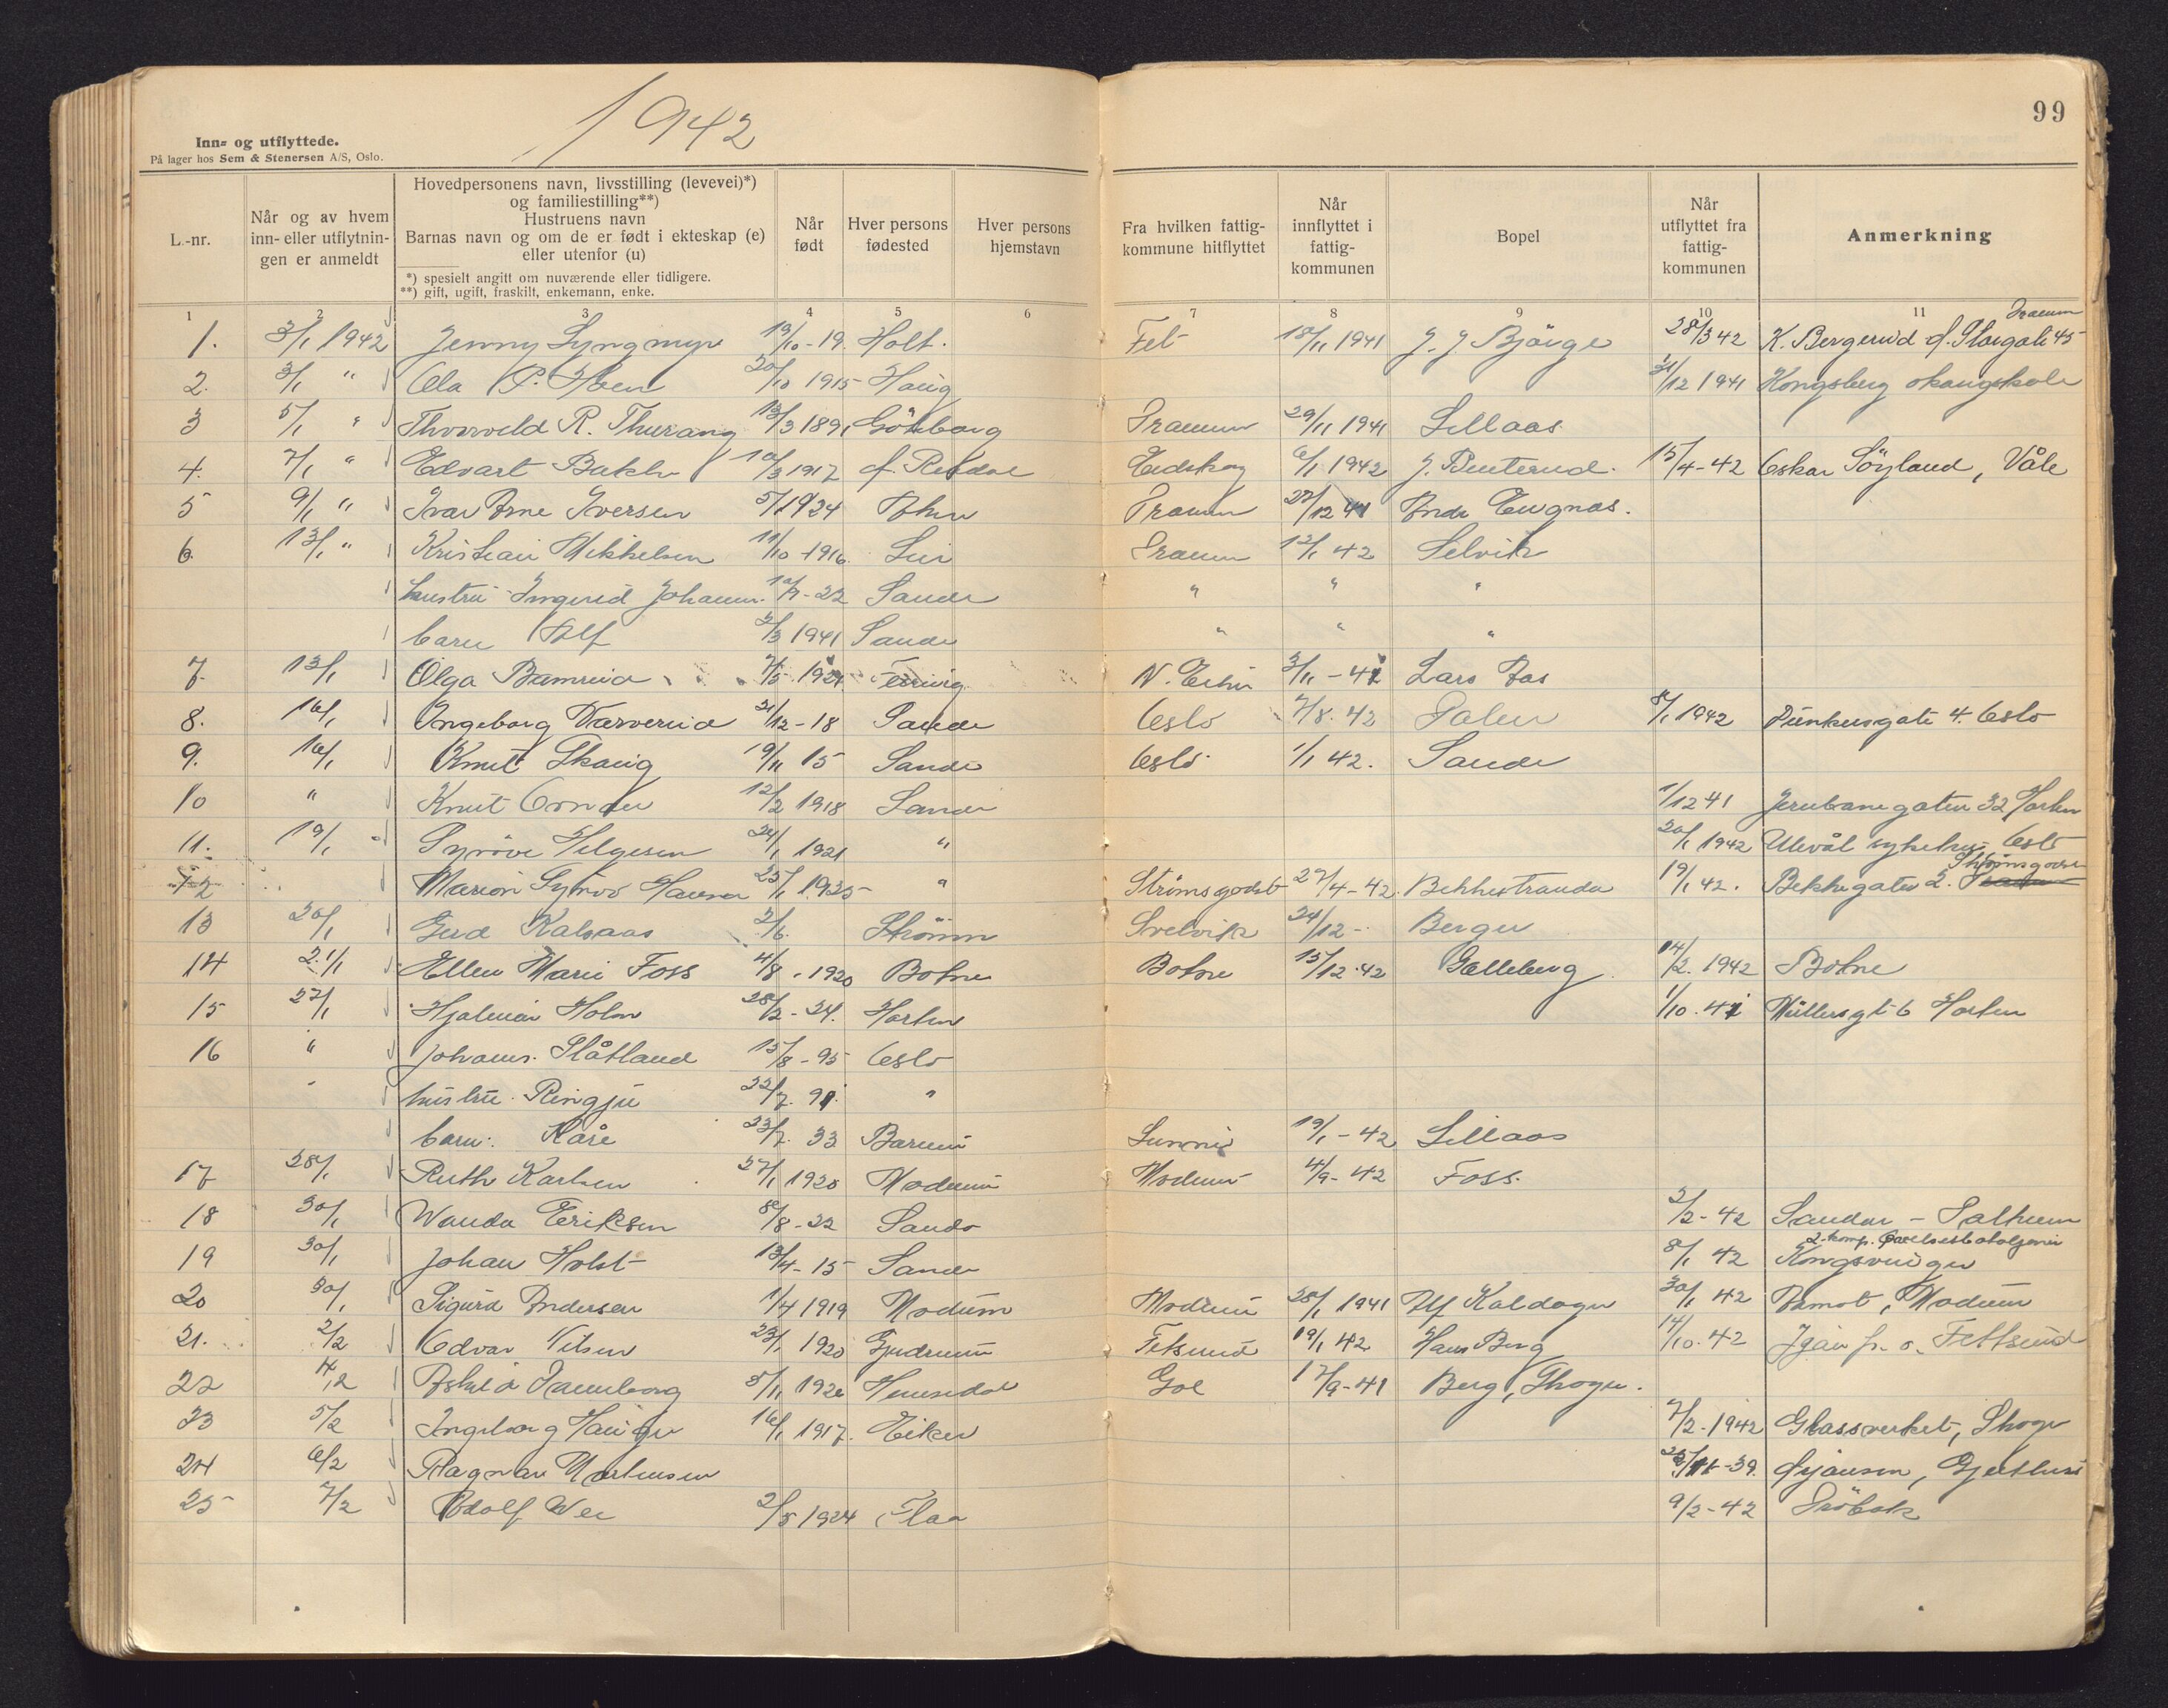 1942
99
Inn- og utflyttede.
På lager hos Sem & Stenersen A/S, Oslo.
L.-nr.
Når og av hvem inn- eller utflytningen er anmeldt
Hovedpersonens navn, livsstilling (levevei)*)
og familiestilling**)
Hustruens navn
Barnas navn og om de er født i ekteskap (e)
eller utenfor (u)
*) spesielt angitt om nuværende eller tidligere.
**) gift, ugift, fraskilt, enkemann, enke.
Når født
Hver persons fødested
Hver persons hjemstavn
Fra hvilken fattigkommune hitflyttet
Når innflyttet i fattigkommunen
Bopel
Når utflyttet fra fattigkommunen
Anmerkning
1 2 3 4 5 6 7 8 9 10 11
1. 3/1 1942 Jenny Lyngmyr 13/10-19. Holt. Fet 18/11 1941 J. J Bjørge 28/3 42 K. Bergerud Storgate 45 Drammen
2. 3/1 " Ola P. Hoen 20/10 1915 Haug 31/12 1941 Kongsberg skougskole
3 5/1 " Thorvald R. Thurang 13/3 1891 Göteborg Drammen 29/11 1941 Lillaas
4. 7/1 " Edvart Bakke 10/3 1917 Rendal Eidskog 6/1 1942 J. Buterud. 15/4-42 Oskar Söyland, Våle
5 9/1 " Ivar Arne Iversen 5/1 1924 Drammen 22/12 41 Engnæs.
6. 13/1 " Kristian Mikkelsen 11/10-1916. Lier Drammen 12/1 42 Selvik
hustru Ingerid Johanne. 10/7-22 Sande " " "
barn Alf 2/3 1941 Sande " " "
7. 13/1 Olga Bamrud 7/5 1924 N. Eiker 3/11-41 Lars Aas
8. 16/1 Ingeborg Varverud 21/12-18 Sande Oslo 7/8. 42 8/1 1942 Munkersgate 4. Oslo
9. 16/1 Knut Skaug 19/11 15 Sande Oslo. 1/1 42. Sande
10 " Knut 12/2 1918 Sande 1/12 41 Jernbanegaten 32 Horten
11. 19/1 Synnöve Helgesen 24/1 1921 " 20/1 1942 Ulevål sykehus Oslo
12 Marion Synnöv Hansen 25/1 1925 " Strömsgodset 27/4-42. Bekkestranda 19/1 42. Bekkegaten 2. Strömsgodset
13 20/1 Gerd Kalsaas 2/6. Skömm Svelvik 24/12- Berger
14 21/1 Ellen Marie Foss 4/8-1920 Botne Botne 15/12.42 Galleberg 14/2. 1942 Botne
15 27/1 Hjalmar Holm 28/2-24. Horten 1/10.41 Müllersgt 6 Horten
16 " Johanes. Slåtland 15/8-95 Oslo
" hustru. Ringju 22/7. 91. "
barn: Kåre 23/7. 33 Bærum 19/1-42 Lillaas
17 28/1 Ruth Karlsen 27/1 1920 Modum Modum 4/9-42 Foss.
18 30/1 Wanda Eriksen 8/8-22 Sande 2/2-42 Sandar -
19 30/1 Johan Holst 13/4-15 Sande 8/1 42 2. komp. Kongsvinger
20 30/1 Sigurd Andersen 1/4 1919 Modum Modum 28/1 1941 Alf Kaldager 30/1 42 Åmot, Modum
21. 2/2 Edvar Nilsen 23/1 1920 Gjerdrum Fetsund 19/1 42 Hans Berg 14/10.42 Igjen fr. o. Fettsund
22 4/2 Askild Jammborg 8/11 1920 Hemsedal Gol 17/9-41 Berg, Skoger.
23 5/2 Ingeborg Hauger 16/1 1917. Eiker 7/2-1942 Glassverket, Skoger
24 6/2 Ragnar Martinsen 11-39.
25 7/2 Adolf Wee 2/5 1924 Flaa 9/2-42 Dröbak